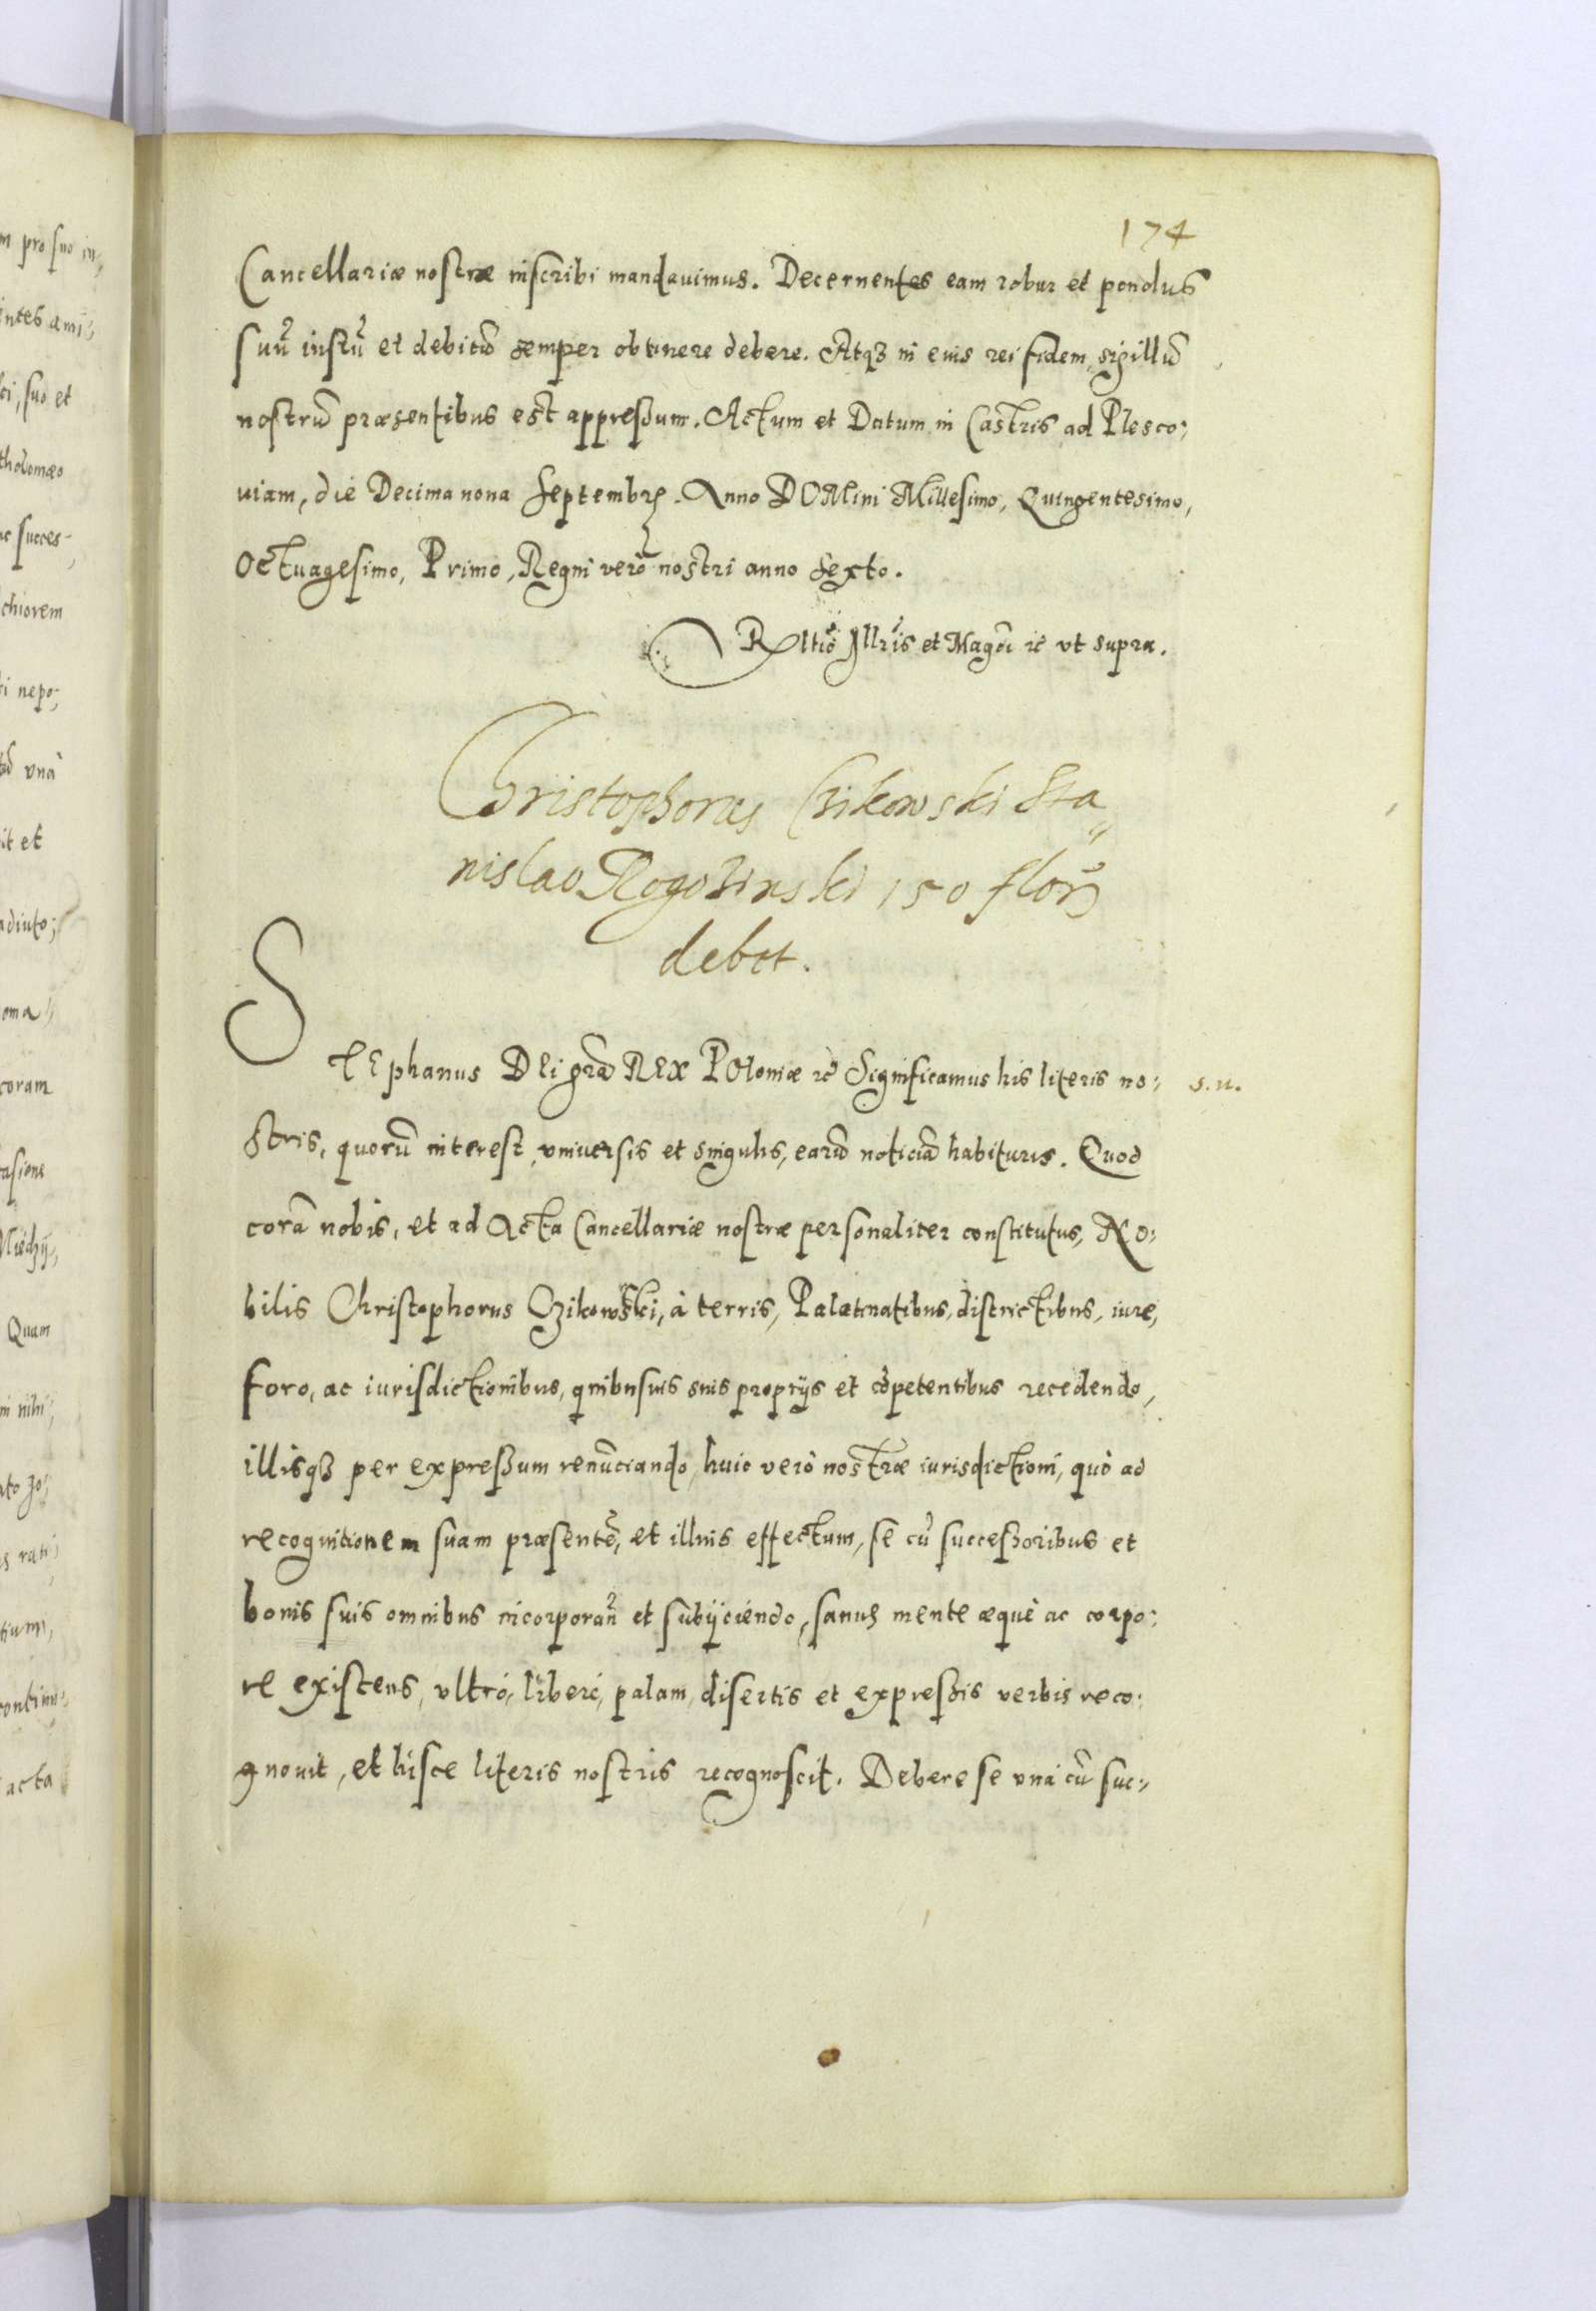 174
Cancellariæ nostræ inscribi mandavimus. Decernentes eam robur et pondus
suũ iustũ et debitũ semper obtinere debere. Atqȝ in eius rei fidem, sigillũ
nostrũ præsentibus est appreßum. Actum et Datum in Castris ad Plesco:
uiam, die Decima nona Septembrꝭ. Anno DOMini Millesimo, Quingentesimo,
Octuagesimo, Primo, Regni verò nostri anno Sexto.
Rltiõ Illr̃is et Magci ꝛc̃ vt supra.
Christophorus Czikowski Sta„
nislao Rogozinski 150 flor̃
debet.
STEphanus DEi gr̃a REX POloniæ ꝛc̃ Significamus his literis no:
s. n.
stris, quorũ interest, vniuersis et singulis, earũ noticiã habituris. Quod
corã nobis, et ad Acta Cancellariæ nostræ personaliter constitutus, No:
bilis Christophorus Czikowski, à terris, Palatinatibus, districtibus, iure,
foro, ac iurisdictionibus, quibusuis suis proprijs et cõpetentibus recedendo,
illisqȝ per expreßum renũciando, huic verò nostræ iurisdictioni, quò ad
recognitionem suam præsentẽ, et illius effectum, se cũ succeßoribus et
bonis suis omnibus incorporañ et subijciendo, sanus mente æquè ac corpo:
re existens, vltrò, liberè, palam, disertis et expreßis verbis reco:
gnouit, et hisce literis nostris recognoscit. Debere se vnà cũ suc: